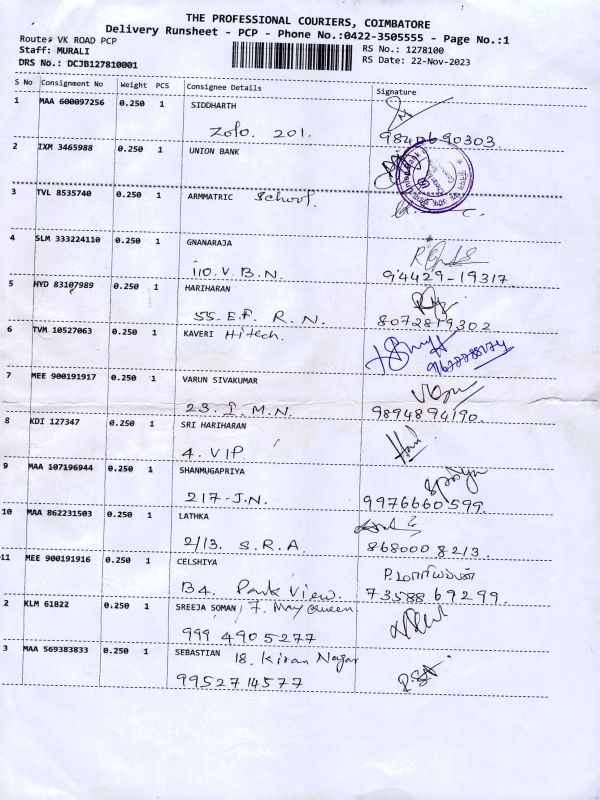 THE PROFESSIONAL COURIERS, COIMBATORE
Delivery Runsheet - PCP - Phone No.:0422-3505555 - Page No.:1
Route: VK ROAD PCP
RS No.: 1278100
Staff: MURALI
RS Date: 22-Nov-2023
DRS No.: DCJB127810001
S No Consignment No Weight PCS Consignee Details Signature
1 MAA 600097256 0.250 1 SIDDHARTH
Zolo. 201. 9840690303
2 IXM 3465988 0.250 1 UNION BANK
3 TVL 8535740 0.250 1 ARMMATRIC School.
4 SLM 333224110 0.250 1 GNANARAJA
110. V. B. N. 94429-19317
5 HYD 83107989 0.250 1 HARIHARAN
55. E.F. R. N. 8072819302
6 TVM 10527063 0.250 1 KAVERI Hitech.
7 MEE 900191917 0.250 1 VARUN SIVAKUMAR
23. L. M. N. 9894894190.
8 KDI 127347 0.250 1 SRI HARIHARAN
4. VIP. Hari
9 MAA 107196944 0.250 1 SHANMUGAPRIYA
217-J.N. 9976660599.
10 MAA 862231503 0.250 1 LATHKA
2/13. S. R. A. 8680008213.
11 MEE 900191916 0.250 1 CELSHIYA P. மாரியப்பன்
B4. Park View. 7358869299
2 KLM 61822 0.250 1 SREEJA SOMAN, 7. May Queen
9994905277
3 MAA 569383833 0.250 1 SEBASTIAN 18. Kiran Nagar
9952714577